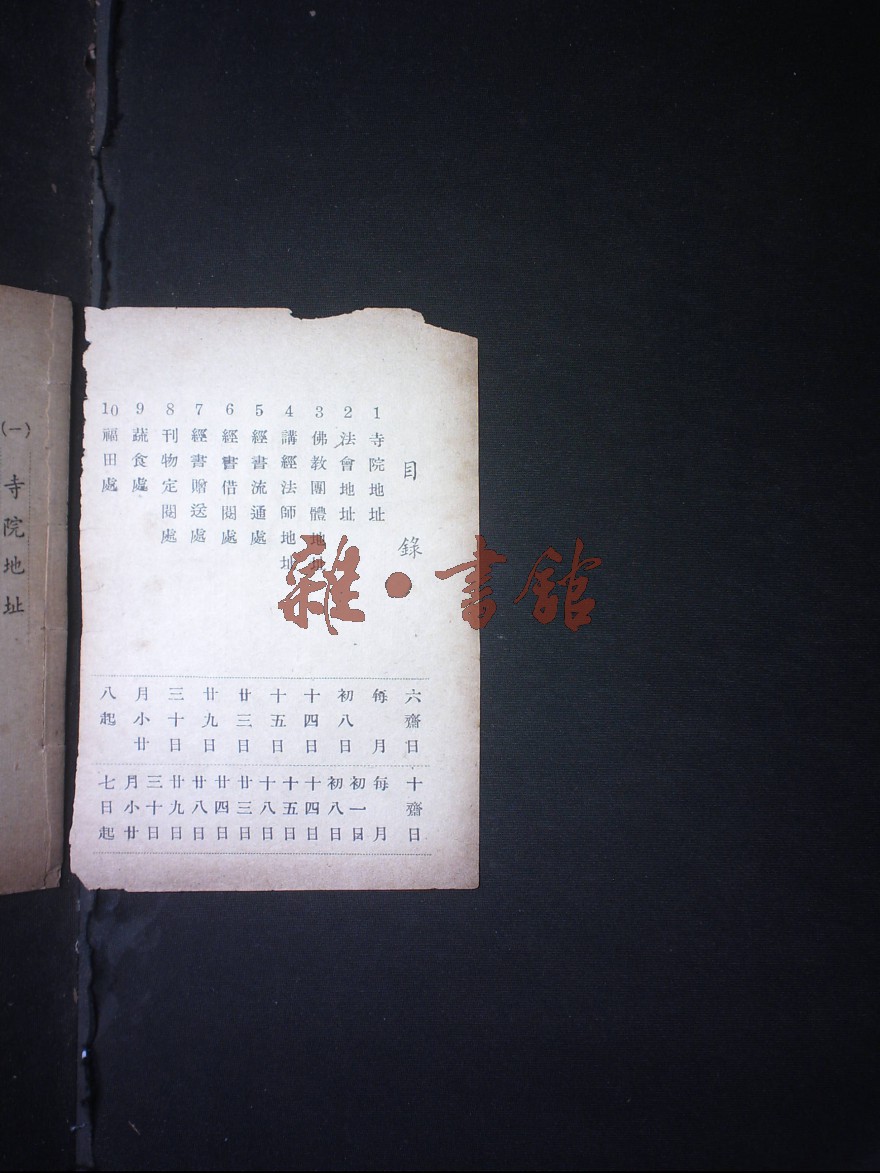 目錄
1 寺院地址
2 法會地址
3 佛教團體地址
4 講經法師地址
5 經書流通處
6 經書借閱處
7 經書贈送處
8 刊物定閱處
9 蔬食處
10 福田處
六齋日
每月
初八日
十四日
十五日
廿三日
廿九日
三十日
月小廿
八起
十齋日
每月
初一日
初八日
十四日
十五日
十八日
廿三日
廿四日
廿八日
廿九日
三十日
月小廿
七日起
(一)寺院地址
雜·書館